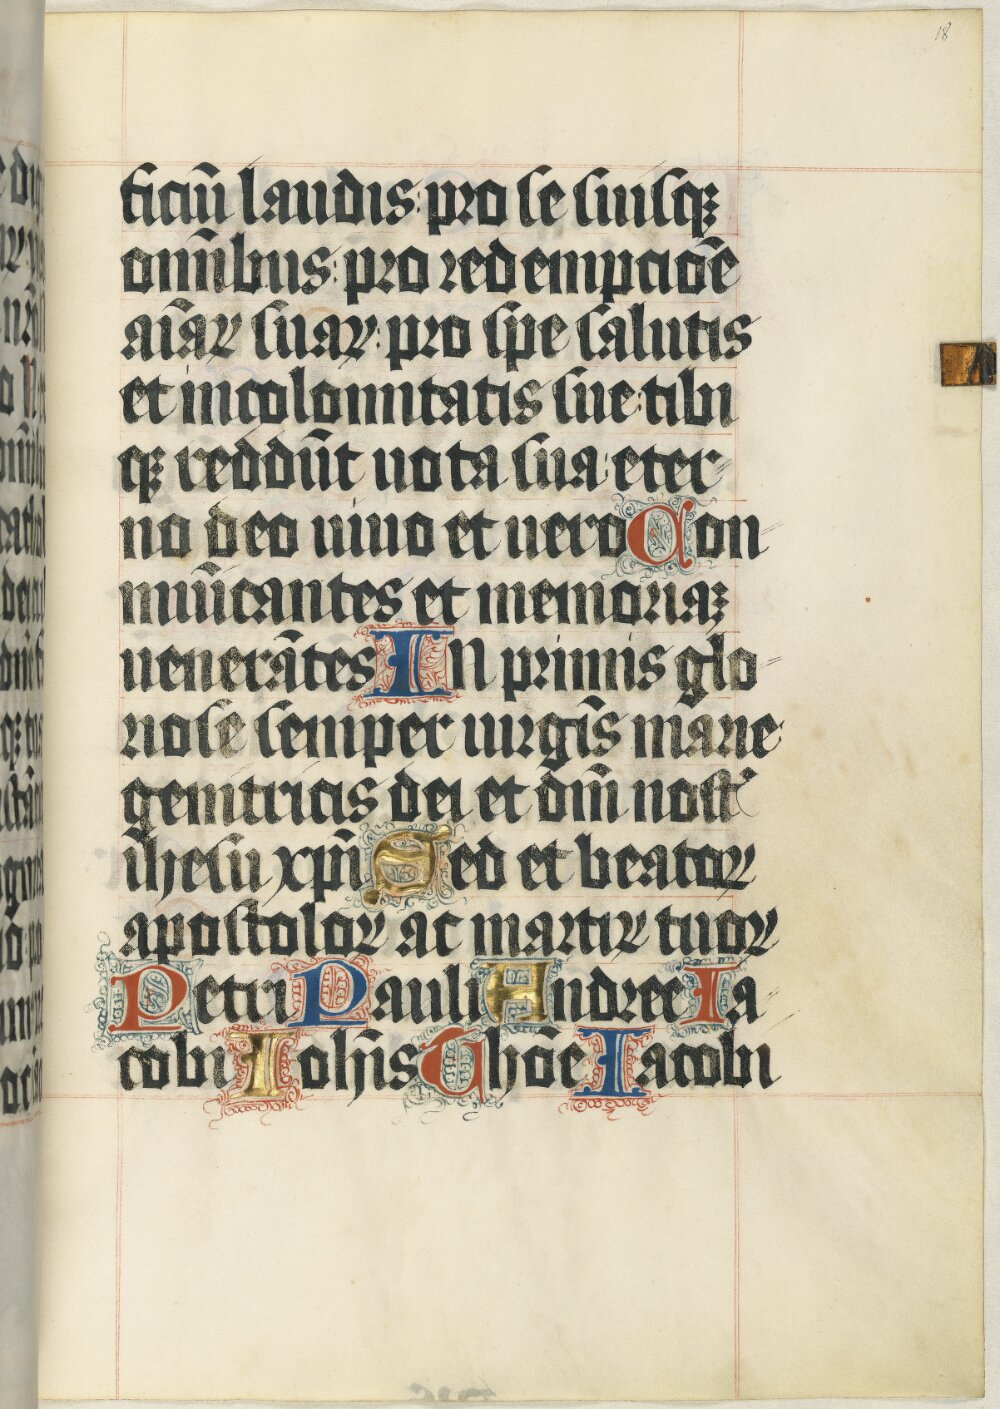 18
ficiū laudis: pro se suisqꝫ
om̄ibus: pro redempcioē
aīaꝝ suaꝝ: pro spe salutis
et incolomitatis sue: tibi
qꝫ reddūt uota sua: eter
no deo uiuo et uero Con
mūicantes et memoriaꝫ
uenerātes In primis glo
riose semper uirgīs marie
genitricis dei et dm̄ nostʳ
ihesu xp̄i Sed et beatoꝝ
apostoloꝝ ac martiꝝ tuoꝝ
Petri Pauli Andree Ia
cobi Ioħis Thōe Iacobi